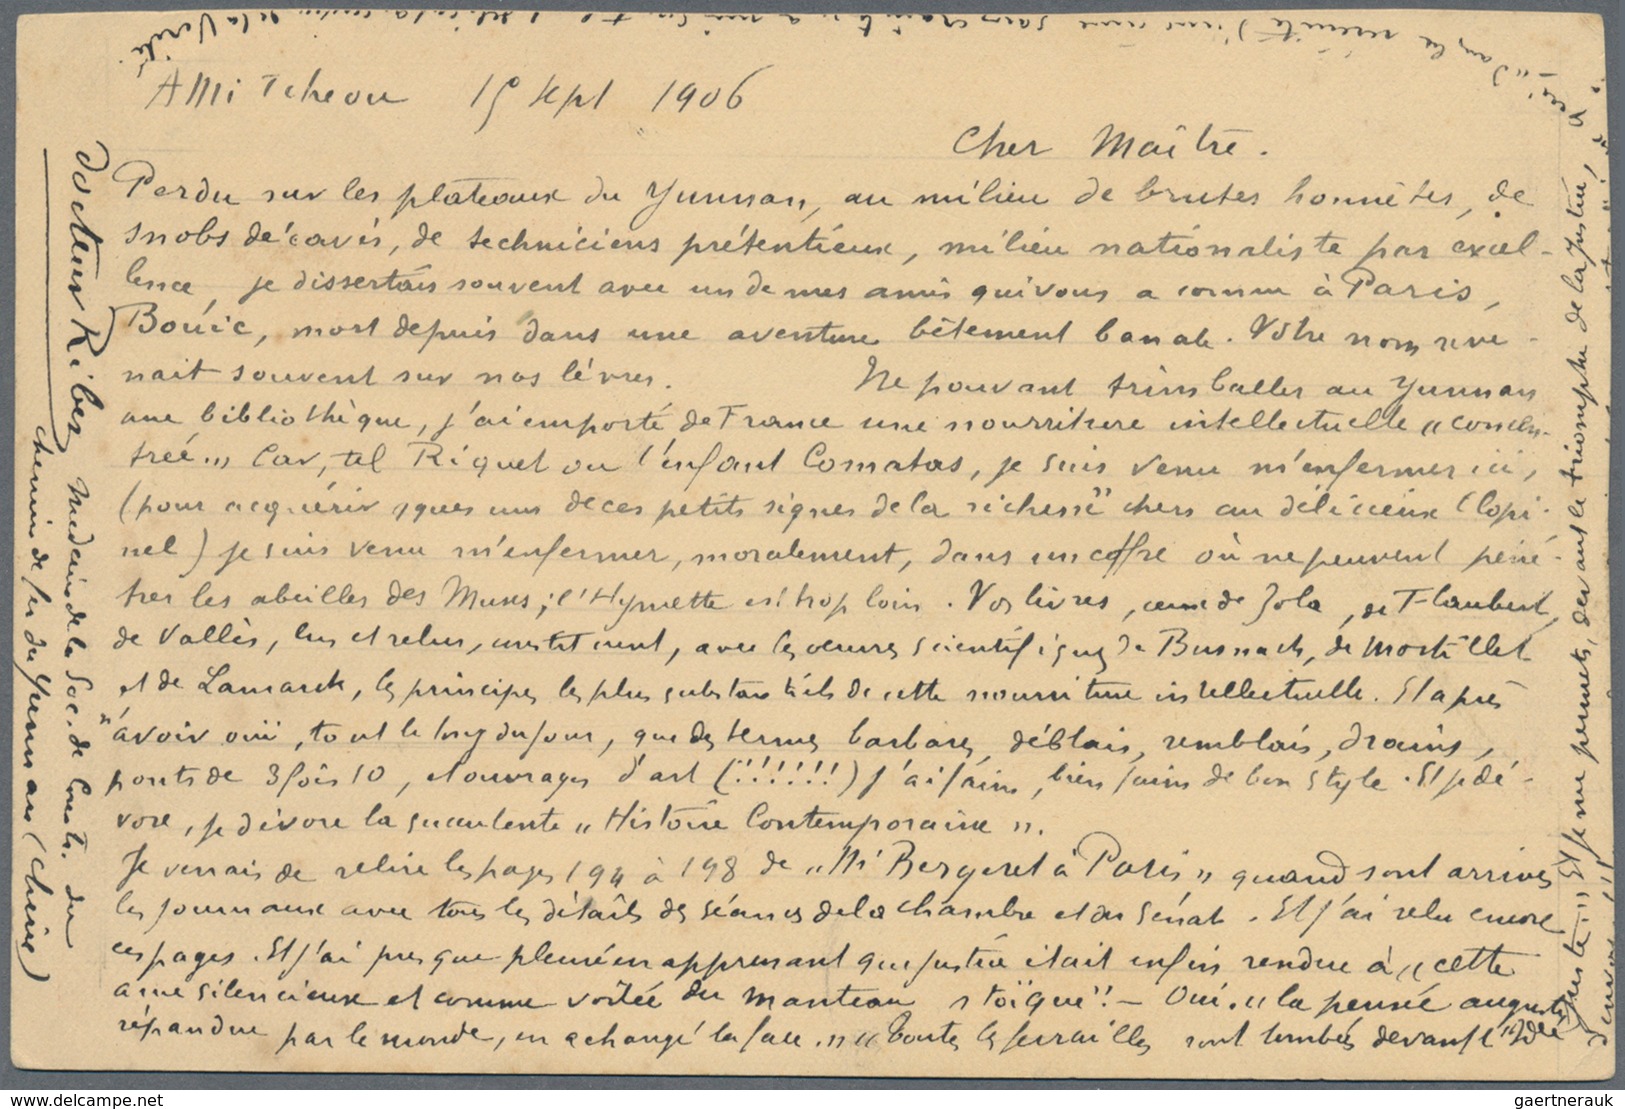 AMi Tcheou 15 sept 1906
Cher Maître.
Perdu sur les plateaux du Yunnan, au milieu de brutes honnêtes, de
snobs décavés, de techniciens prétentieux, milieu nationaliste par excel-
lence, je dissertais souvent avec un de mes amis qui vous a connu à Paris,
Bouïc, mort depuis dans une aventure bêtement banale. Votre nom reve-
nait souvent sur nos lèvres. Ne pouvant trimballer au Yunnan
une bibliothèque, j'ai emporté de France une nourriture intellectuelle "concen-
trée." Car, tel Riquet ou l'enfant Comatas, je suis venu m'enfermer ici,
(pour acquérir qques uns de ces petits signes de la richesse" chers au délicieux Clopi-
nel) je suis venu m'enfermer, moralement, dans un coffre où ne peuvent péné-
trer les abeilles des Muses; l'Hymette est trop loin. Vos livres, ceux de Zola, de Flaubert,
de Vallès, lus et relus, constituent, avec les œuvres scientifiques de de Mortillet
et de Lamarck, les principes les plus substantiels de cette nourriture intellectuelle. Et après
"avoir ouï, tout le long du jour, que des termes barbares, déblais, remblais, drains,
ponts de 3 fois 10, et ouvrages d'art (!!!!!!) j'ai faim, bien faim de bon style. Et je dé-
vore, je dévore la succulente "Histoire Contemporaine".
Je venais de relire les pages 194 à 198 de "Mr Bergeret à Paris" quand sont arrivés
les journaux avec tous les détails des séances de la chambre et du Sénat. Et j'ai relu encore
ces pages. Et j'ai presque pleuré en apprenant que justice était enfin rendue à "cette
ame silencieuse et comme voilée du manteau stoïque"! — Oui. "la pensée auguste
répandue par le monde, en a changé la face." "toutes les ferrailles sont tombées devant l'Idée
juste." Et je me permets, devant le triomphe de la Justice,
"dans la sérénité d'une âme sans crainte
Docteur Ribes
Médecin de la Soc. de Constr. du
chemin de fer du Yunnan (Chine)
gaertnerauk
www.delcampe.net